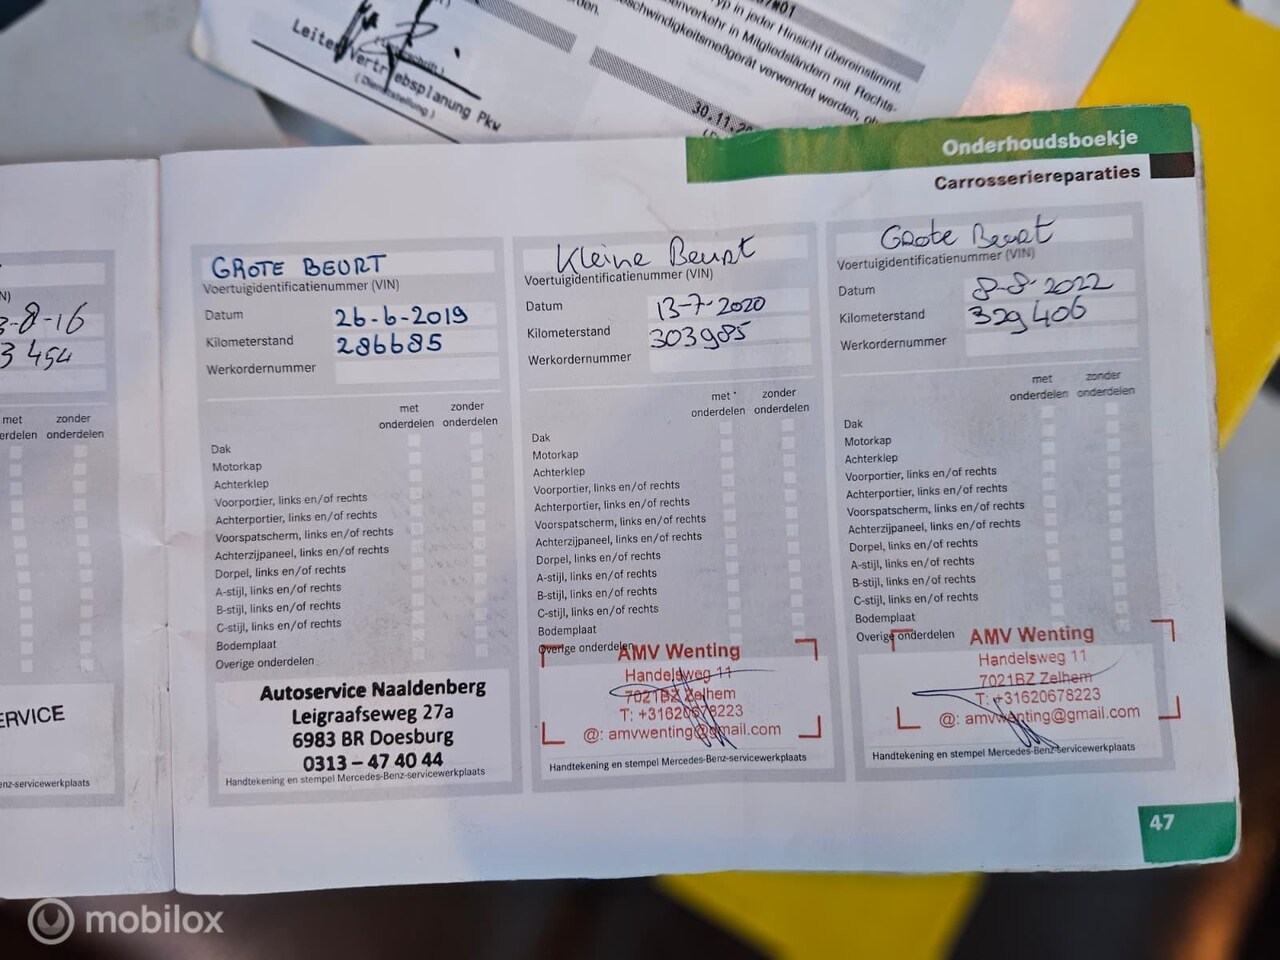 yp in jeder Hinsicht übereinstimmt.
enverkehr in Mitgliedsländern mit Rechts-
schwindigkeitsmeßgerät verwendet werden,
Leiter Vertriebsplanung Pkw
(Dienststellung)
30.11.20
Onderhoudsboekje
Carrosseriereparaties
3-8-16
3 454
met zonder
erdelen onderdelen
ERVICE
enz-servicewerkplaats
GROTE BEURT
Voertuigidentificatienummer (VIN)
Datum 26-6-2019
Kilometerstand 286685
Werkordernummer
met zonder
onderdelen onderdelen
Dak
Motorkap
Achterklep
Voorportier, links en/of rechts
Achterportier, links en/of rechts
Voorspatscherm, links en/of rechts
Achterzijpaneel, links en/of rechts
Dorpel, links en/of rechts
A-stijl, links en/of rechts
B-stijl, links en/of rechts
C-stijl, links en/of rechts
Bodemplaat
Overige onderdelen
Autoservice Naaldenberg
Leigraafseweg 27a
6983 BR Doesburg
0313 – 47 40 44
Handtekening en stempel Mercedes-Benz-servicewerkplaats
Kleine Beurt
Voertuigidentificatienummer (VIN)
Datum 13-7-2020
Kilometerstand 303985
Werkordernummer
met zonder
onderdelen onderdelen
Dak
Motorkap
Achterklep
Voorportier, links en/of rechts
Achterportier, links en/of rechts
Voorspatscherm, links en/of rechts
Achterzijpaneel, links en/of rechts
Dorpel, links en/of rechts
A-stijl, links en/of rechts
B-stijl, links en/of rechts
C-stijl, links en/of rechts
Bodemplaat
Overige onderdelen
AMV Wenting
Handelsweg 11
7021BZ Zelhem
T: +31620678223
@: amvwenting@gmail.com
Handtekening en stempel Mercedes-Benz-servicewerkplaats
Grote Beurt
Voertuigidentificatienummer (VIN)
Datum 8-8-2022
Kilometerstand 329406
Werkordernummer
met zonder
onderdelen onderdelen
Dak
Motorkap
Achterklep
Voorportier, links en/of rechts
Achterportier, links en/of rechts
Voorspatscherm, links en/of rechts
Achterzijpaneel, links en/of rechts
Dorpel, links en/of rechts
A-stijl, links en/of rechts
B-stijl, links en/of rechts
C-stijl, links en/of rechts
Bodemplaat
Overige onderdelen
AMV Wenting
Handelsweg 11
7021BZ Zelhem
T: +31620678223
@: amvwenting@gmail.com
Handtekening en stempel Mercedes-Benz-servicewerkplaats
47
mobilox